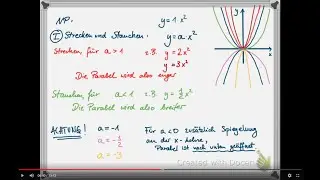 NP. y = 1·x²
① Strecken und Stauchen: y = a·x²
Strecken für a > 1 z.B. y = 2x²
y = 3x²
Die Parabel wird also enger
Stauchen für a < 1 z.B. y = ½x²
Die Parabel wird also breiter
ACHTUNG! a = -1 Für a<0 zusätzlich Spiegelung
a = -½ an der x-Achse,
a = -3 Parabel ist nach unten geöffnet.
Created with Doceri